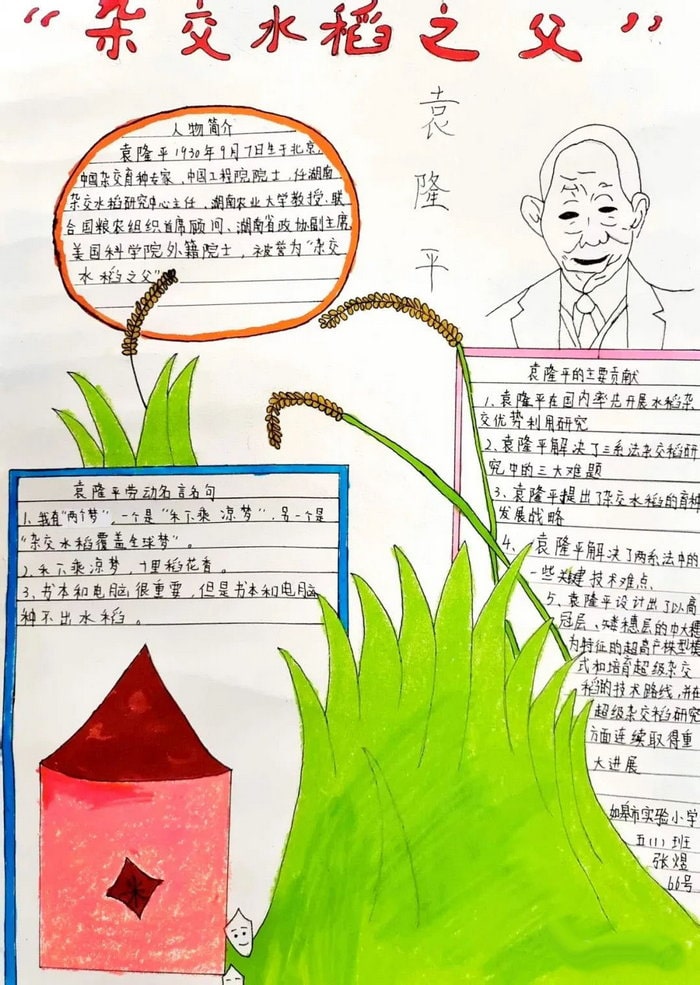 “杂交水稻之父”
袁隆平
人物简介
袁隆平1930年9月7日生于北京,
中国杂交育种专家,中国工程院院士,任湖南
杂交水稻研究中心主任、湖南农业大学教授,联
合国粮农组织首席顾问、湖南省政协副主席
美国科学院外籍院士,被誉为“杂交
水稻之父”。
袁隆平的主要贡献
1、袁隆平在国内率先开展水稻杂
交优势利用研究
2、袁隆平解决了三系法杂交稻研
究中的三大难题
3、袁隆平提出了杂交水稻的育种
发展战略
4、袁隆平解决了两系法中的
一些关键技术难点
5、袁隆平设计出了以高
冠层、矮穗层的中大穗
为特征的超高产株型模
式和培育超级杂交
稻的技术路线,并在
超级杂交稻研究
方面连续取得重
大进展
袁隆平劳动名言名句
1、我有“两个梦”,一个是“禾下乘凉梦”,另一个是
“杂交水稻覆盖全球梦”。
2、禾下乘凉梦,十里稻花香。
3、书本和电脑很重要,但是书本和电脑
种不出水稻。
如皋市实验小学
五(1)班
张煜
66号